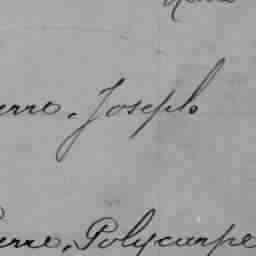 erre, Joseph
ierre, Polycarpe